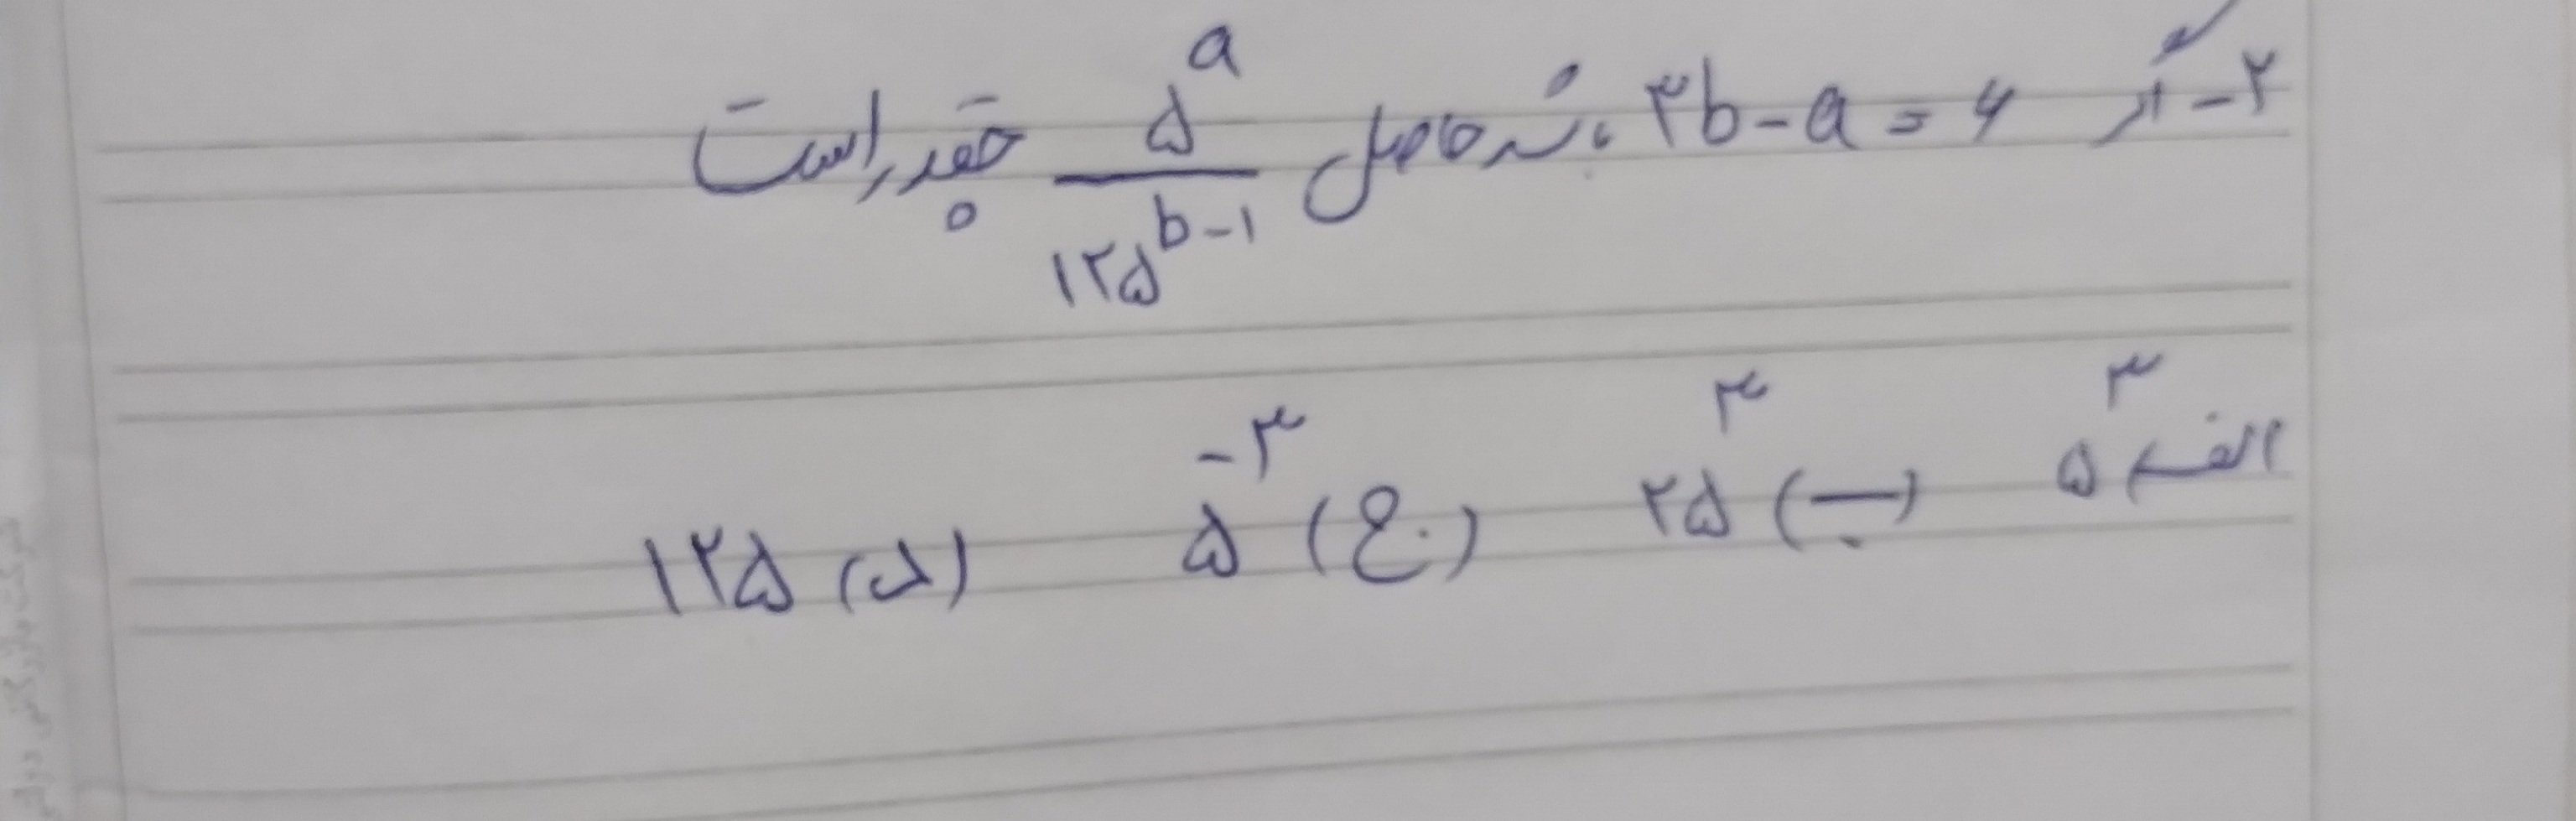 ۲- اگر ۳b - a = ۶ باشد حاصل ۵^a / ۱۲۵^(b-۱) چقدر است
الف) ۵^۳ ب) ۲۵^۳ ج) ۵^-۳ د) ۱۲۵